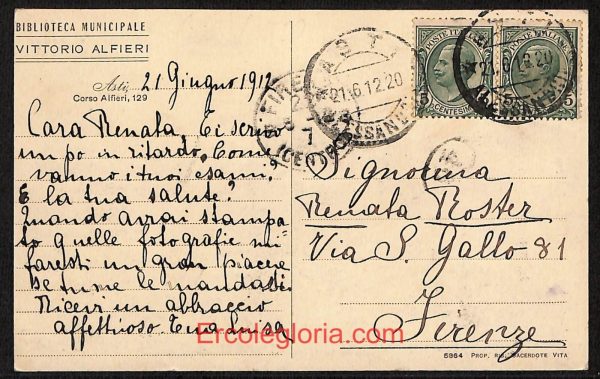 BIBLIOTECA MUNICIPALE
VITTORIO ALFIERI
Asti, 21 Giugno 1912
Corso Alfieri, 129
Cara Renata, Ti scrivo
un po in ritardo, Come
vanno i tuoi esami?
E la tua salute?
Quando avrai stampa
to quelle fotografie mi
faresti un gran piacere
se tu me le mandassi
Ricevi un abbraccio
affettuoso. Tua Luisa
POSTE ITALIANE
CENTESIMI 5
POSTE ITALIANE
5
ASTI
21.6.12.20
ALESSANDRIA
FIRENZE
(CENTRO)
21.6.12.20
(ALESSANDRIA)
Signorina
Renata Roster
Via S. Gallo 81
Firenze
5364 PROP. RIS. SACERDOTE VITA
Ercolegloria.com